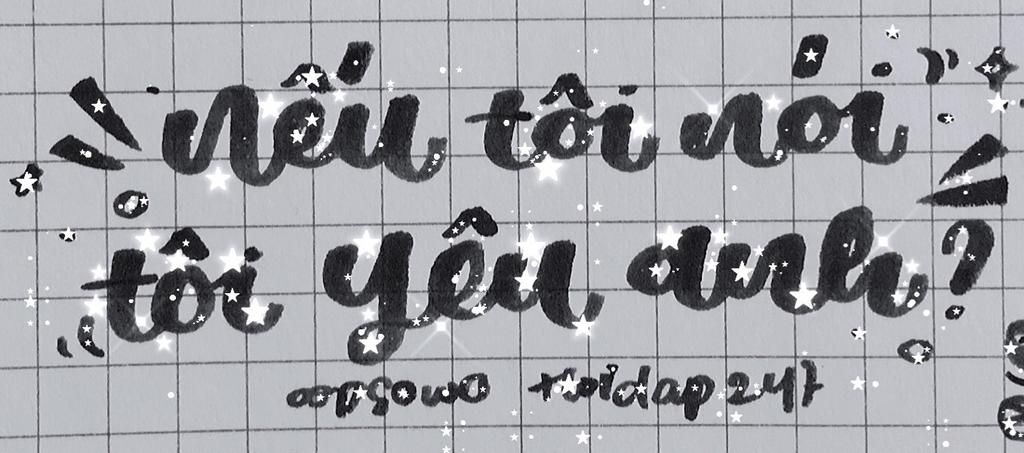 nếu tôi nói
tôi yêu anh?
oopsowo traidap247